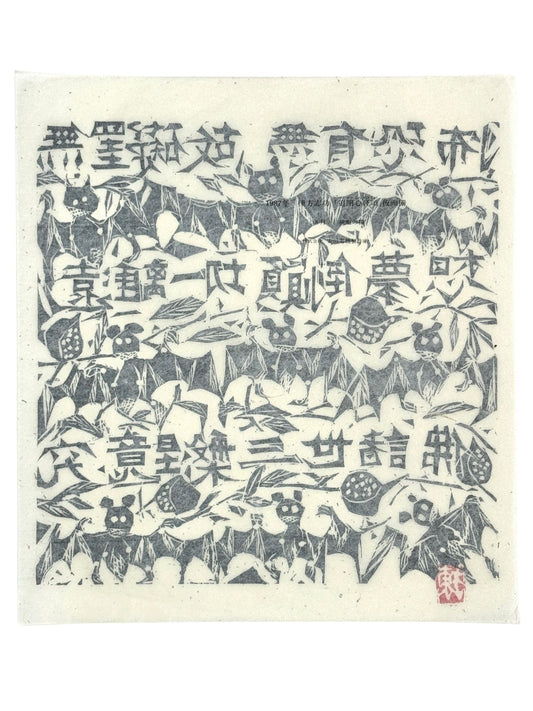 無罣礙故無有恐怖
1987年 棟方志功
遠離一切顛倒夢想
究竟涅槃三世諸佛